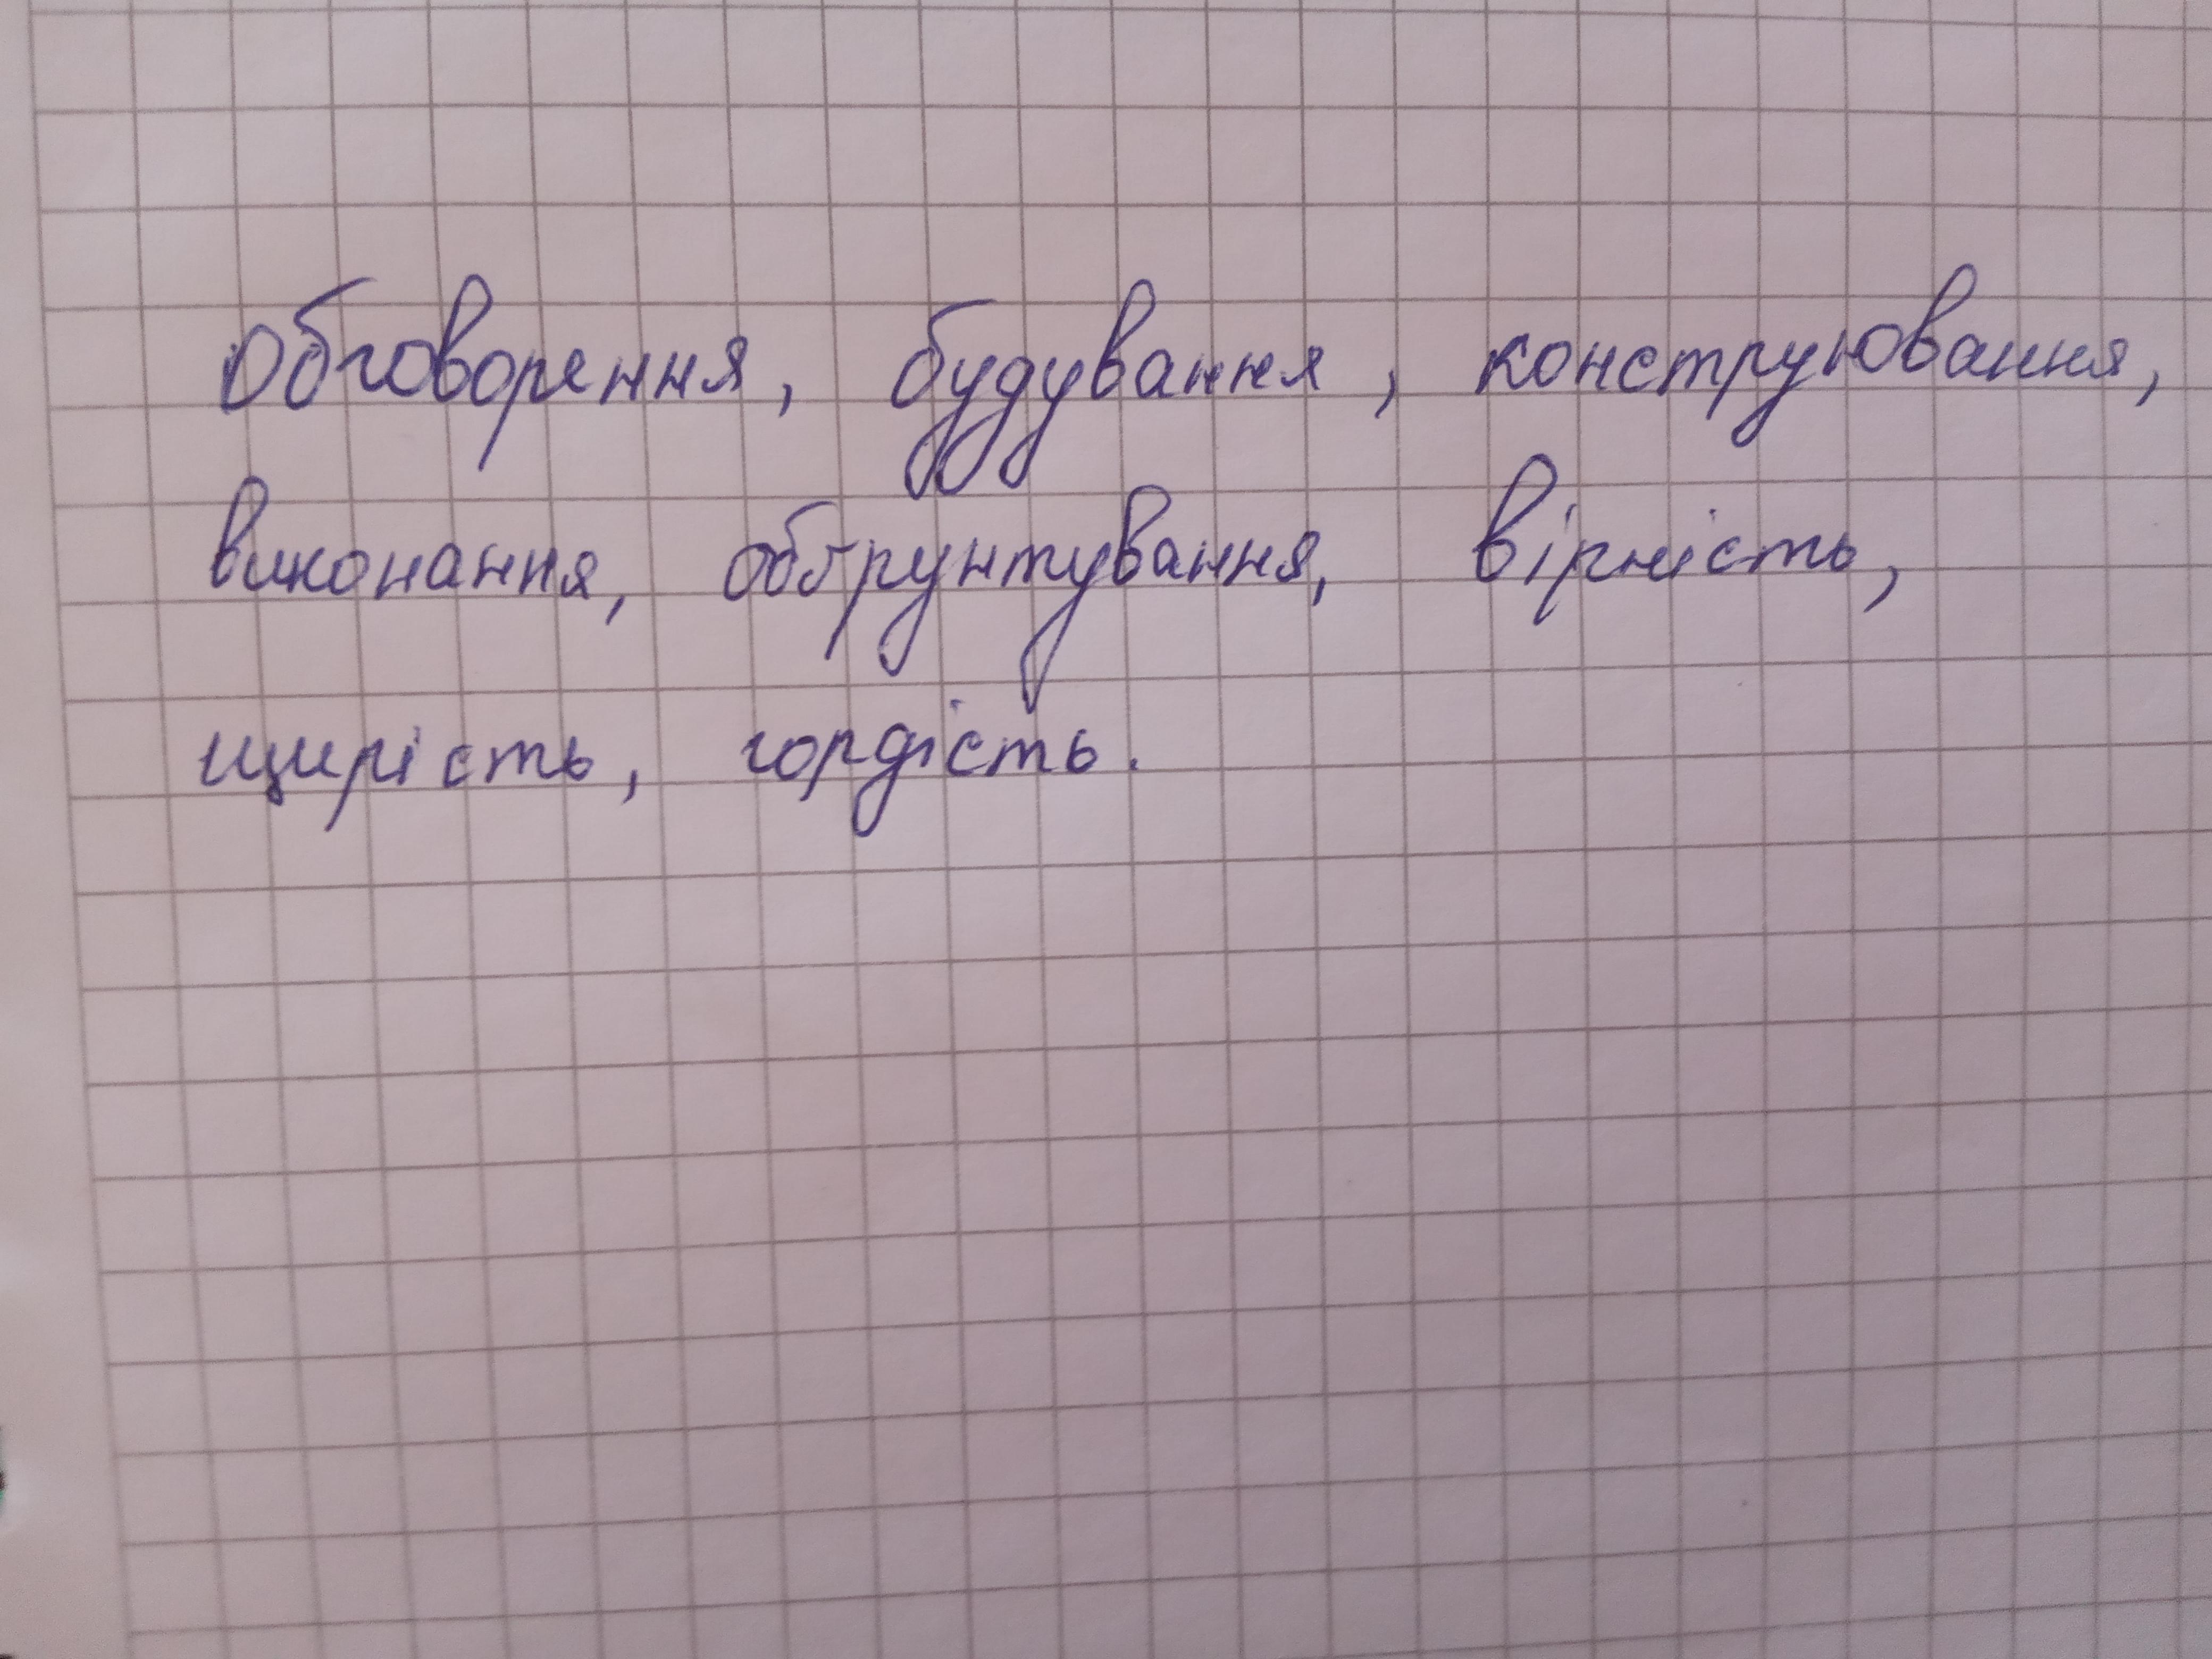 Обговорення, будування, конструювання,
виконання, обґрунтування, вірність,
щирість, гордість.